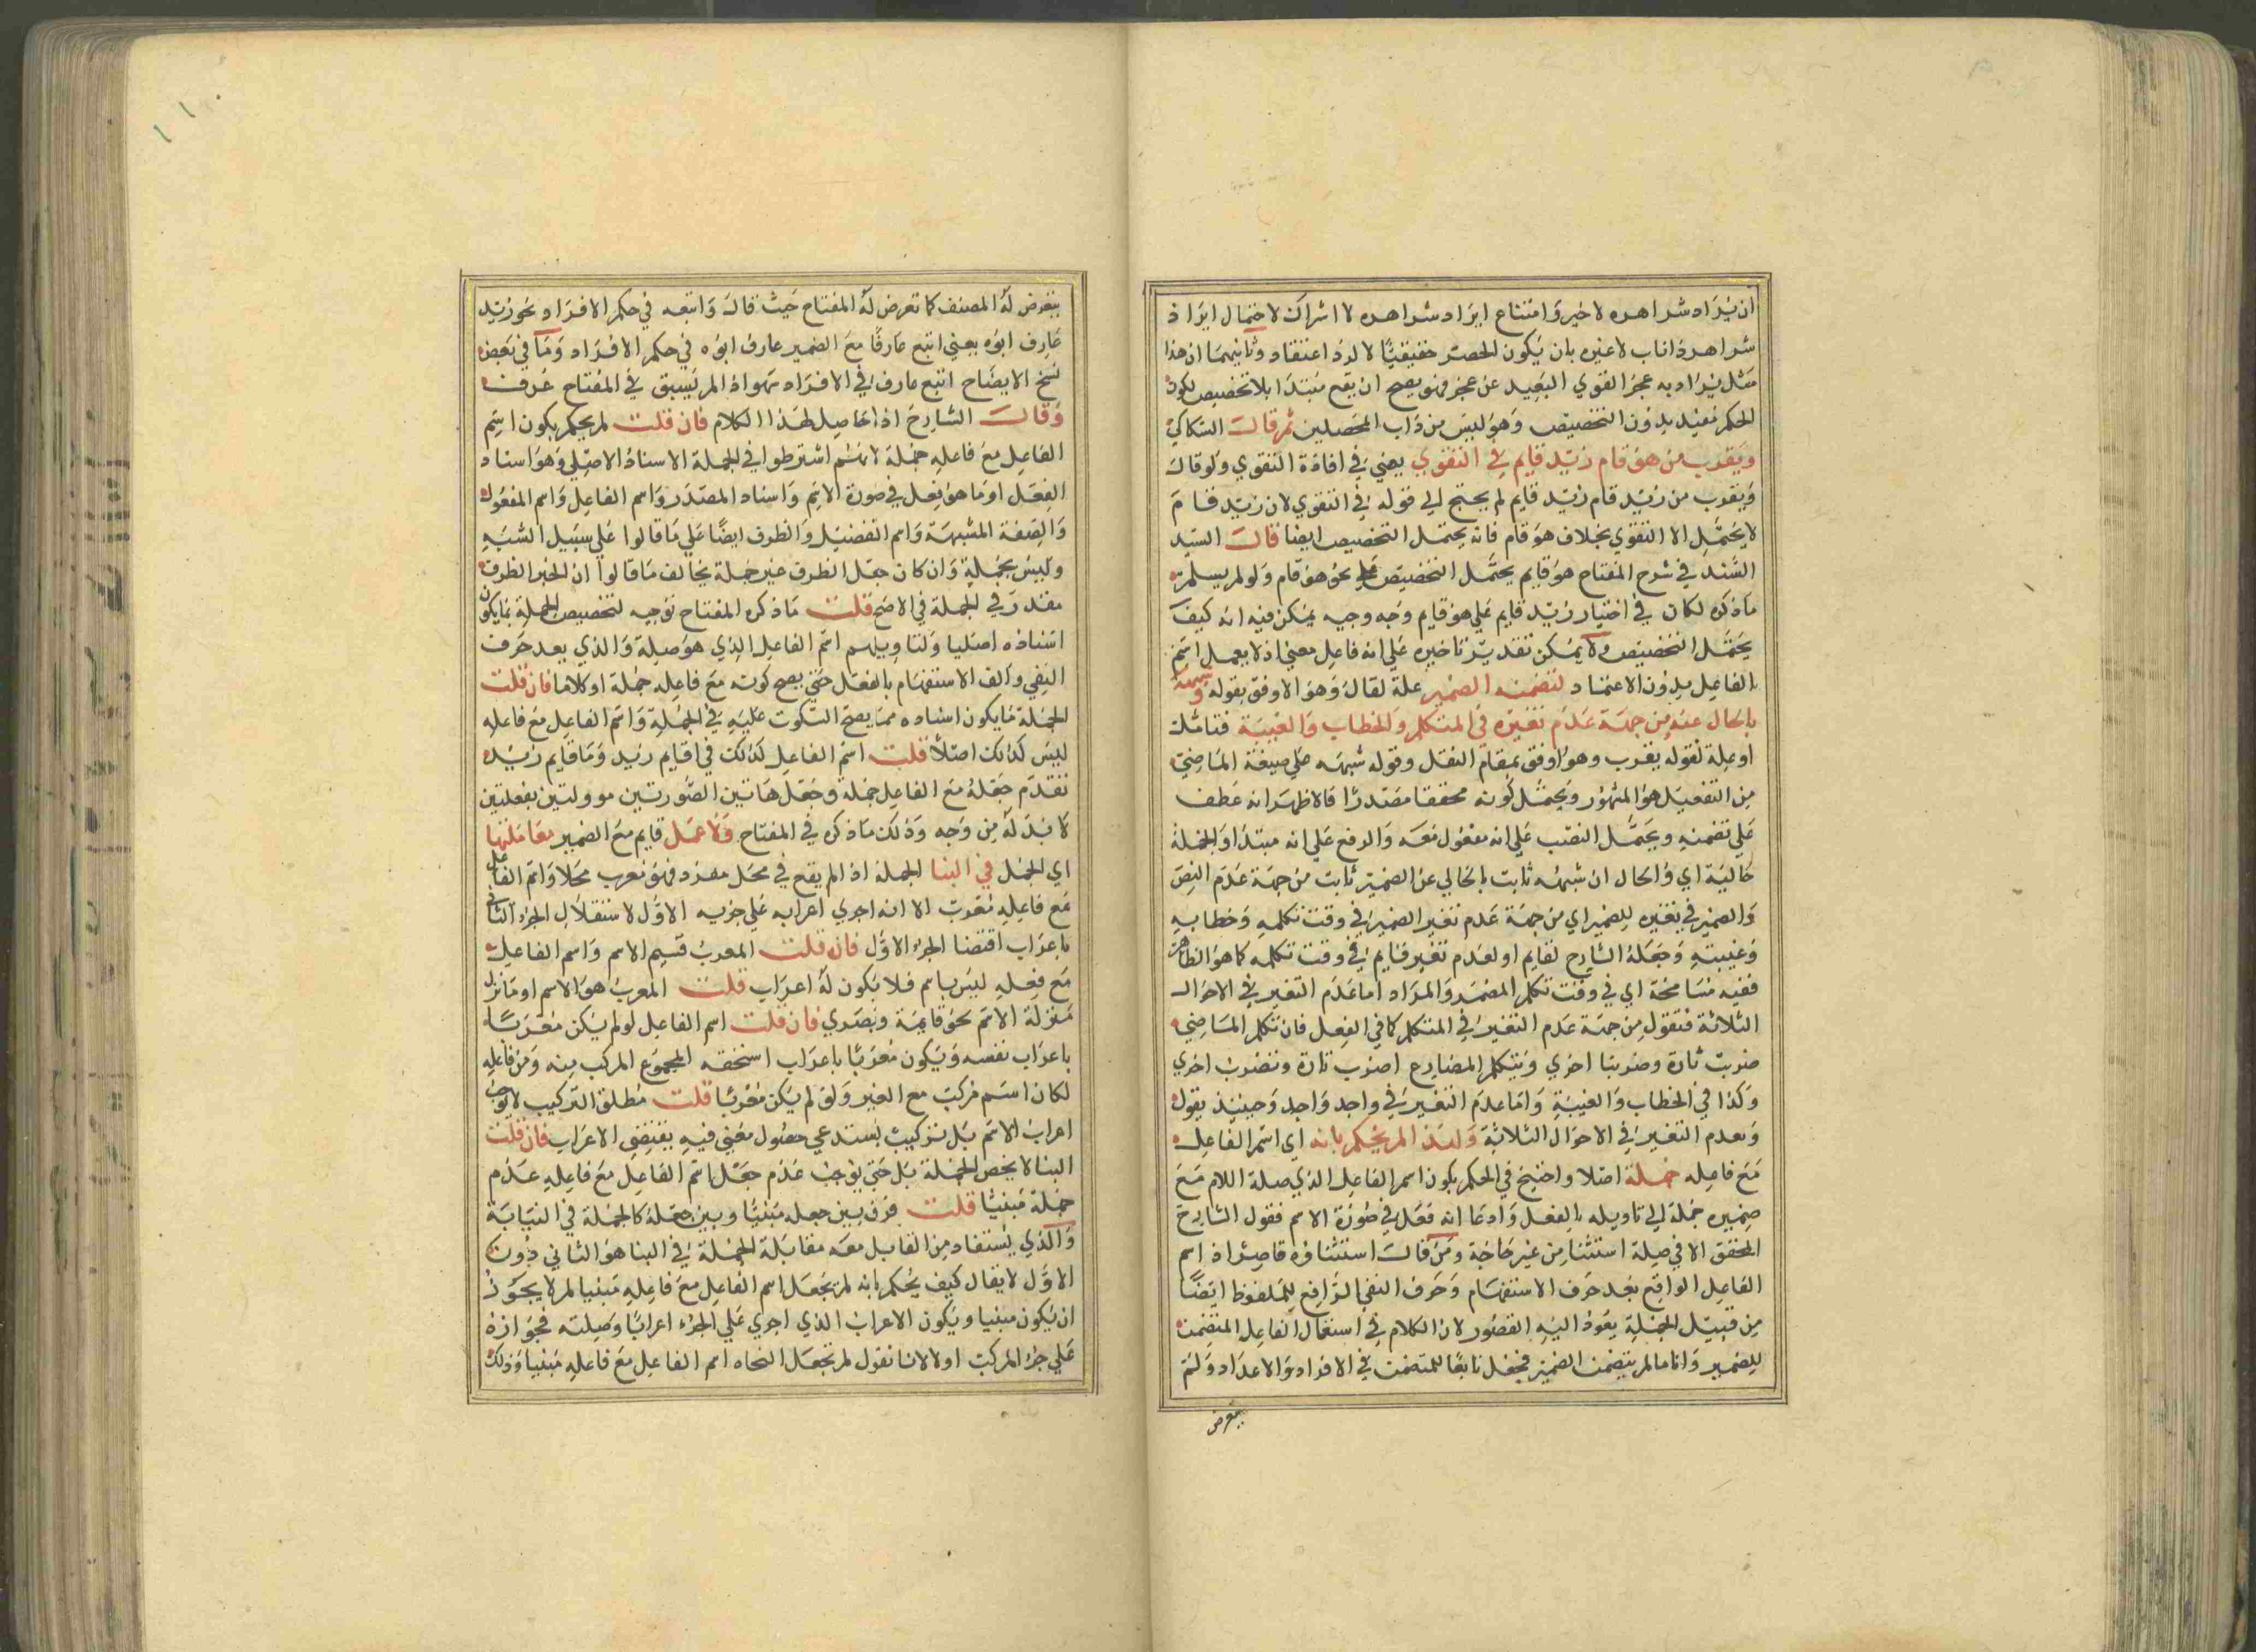 ان يراد شر اهره لا خير وامتناع ايراد شر اهره لا اشراك لاحتمال ايراد
شر اهر ذا ناب لا غيره بان يكون الحصر حقيقيا لا لرد اعتقاد وثانيهما ان هذا
مثل يراد به عجز القوي البعيد عن عجز فهو يصح ان يقع مبتدا بلا تخصيص لكون
الحكم مفيد بدون التخصيص وهو ليس من داب المحصلين ثم قال السكاكي
ويقرب من هو قام زيد قايم في التقوي يعني في افادة التقوي ولو قال
ويقرب من زيد قام زيد قايم لم يحتج الي قوله في التقوي لان زيد قام
لا يحتمل الا التقوي بخلاف هو قام فانه يحتمل التخصيص ايضا قال السيد
السند في شرح المفتاح هو قايم يحتمل التخصيص علي نحو هو قام ولو لم يسلم
ما ذكره لكان في اختيار زيد قايم علي هو قايم وجه وجيه يمكن فيه انه كيف
يحتمل التخصيص ولا يمكن تقدير تاخيره علي انه فاعل معني اذ لا يعمل اسم
الفاعل بدون الاعتماد لتضمنه الضمير علة لقال وهو الاوفق بقوله وشبهه
بالخالي عنه من جهة عدم تغيره في المتكلم والخطاب والغيبة فتامل
او علة لقوله يقرب وهو اوفق بمقام النقل وقوله شبهه علي صيغة الماضي
من التفعيل هو المشهور ويحتمل كونه محققا مصدرا فالاظهر انه عطف
علي تضمنه ويحتمل النصب علي انه مفعول معه والرفع علي انه مبتدا والجملة
حالية اي والحال ان شبهه ثابت بالخالي عن الضمير ثابت من جهة عدم النص
والضمير في تغيره للضمير اي من جهة عدم تغير الضمير في وقت تكلمه وخطابه
وغيبته وجعله الشارح لقايم او لعدم تغير قايم في وقت تكلمه كما هو الظاهر
ففيه مسامحة اي في وقت تكلم المضمر والمراد اما عدم التغير في الاحوال
الثلاثة فتقول من جهة عدم التغير في المتكلم كما في الفعل فان تكلم الماضي
ضربت تارة وضربنا اخري وتكلم المضارع اضرب تارة ونضرب اخري
وكذا في الخطاب والغيبة واما عدم التغير في واحد واحد وحينيذ يقول
وبعدم التغير في الاحوال الثلاثة ولهذا لم يحكم بانه اي اسم الفاعل
مع فاعله جملة اصلا واحتيج في الحكم بكون اسم الفاعل الذي صلة اللام مع
ضميره جملة الي تاويله بالفعل وادعا انه فعل في صورة الاسم فقول الشارح
المحقق الا في صلة استثنا من غير حاجة ومن قال استثناؤه قاصر اذ اسم
الفاعل الواقع بعد حرف الاستفهام وحرف النفي الرافع للملفوظ ايضا
من قبيل الجملة يعود اليه القصور لان الكلام في استعمال الفاعل المتضمن
للضمير واما ما لم يتضمن الضمير فجعل تابعا للمتضمن في الافراد والاعداد ولم
يتعرض
يتعرض له المصنف كما تعرض له المفتاح حيث قال واتبعه في حكم الافراد نحو زيد
عارف ابوه يعني اتبع عارفا مع الضمير عارف ابوه في حكم الافراد وما في بعض
نسخ الايضاح اتبع عارف في الافراد سهو اذ لم يسبق في المفتاح عرف
وقال الشارح اذا حاصل لهذا الكلام فان قلت لم يحكم بكون اسم
الفاعل مع فاعله جملة لانهم اشترطوا في الجملة الاسناد الاصلي وهو اسناد
الفعل او ما هو فعل في صورة الاسم واسناد المصدر واسم الفاعل واسم المفعول
والصفة المشبهة واسم التفضيل والظرف ايضا علي ما قالوا علي سبيل الشبه
وليس بجملة وان كان جعل الظرف غير جملة يخالف ما قالوا ان الخبر الظرف
مقدر في الجملة في الاصح قلت ما ذكره المفتاح توجيه لتخصيص الجملة بما يكون
اسناده اصليا ولتاويلهم اسم الفاعل الذي هو صلة والذي بعد حرف
النفي والف الاستفهام بالفعل حتي يصح كونه مع فاعله جملة او كلاما فان قلت
الجملة ما يكون اسناده مما يصح السكوت عليه في الجملة واسم الفاعل مع فاعله
ليس كذلك اصلا قلت اسم الفاعل كذلك في اقايم زيد وما قايم زيد
تقدم جعله مع الفاعل جملة وجعل هاتين الصورتين موولتين بفعلتين
لا بد له من وجه وذلك ما ذكره في المفتاح ولا عمل قايم مع الضمير معاملتها
اي الجمل في البنا الجملة اذ لم يقع في محل مفرد فهو معرب محلا واسم الفاعل
مع فاعله معرب الا انه اجري اعرابه علي جزيه الاول لاستقلال الجزء الثاني
باعراب اقتضا الجزء الاول فان قلت المعرب قسيم الاسم واسم الفاعل
مع فعله ليس باسم فلا يكون له اعراب قلت المعرب هو الاسم او ما نزل
منزلة الاسم نحو قايمة وبصري فان قلت اسم الفاعل لو لم يكن معربا
باعراب نفسه ويكون معربا باعراب استحقه المجموع المركب منه ومن فاعله
لكان اسم مركب مع الغير ولو لم يكن معربا قلت مطلق التركيب لا يوجب
اعراب الاسم بل تركيب يستدعي حصول معني فيه يقتضي الاعراب فان قلت
البنا لا يخص الجملة بل حتي يوجب عدم جعل اسم الفاعل مع فاعله عدم
جملة مبنيا قلت فرق بين جعله مبنيا وبين جعله كالجملة في النيابة
والذي يستفاد من القابل معه مقابلة الجملة في البنا هو الثاني دون
الاول لا يقال كيف يحكم بانه لم يجعل اسم الفاعل مع فاعله مبنيا لم لا يجوز
ان يكون مبنيا ويكون الاعراب الذي اجري علي الجزء اعرابا وصلته فجوازه
علي جزء المركب اولا لانا نقول لم تجعل النحاه اسم الفاعل مع فاعله مبنيا وذلك